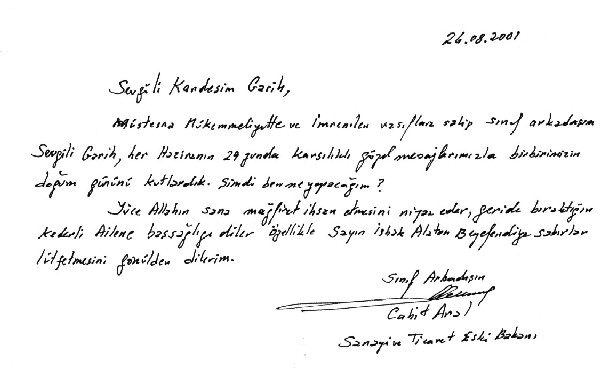 26.08.2001
Sevgili Kardeşim Garih,
Müstesna Mükemmeliyette ve imrenilen vasıflara sahip sınıf arkadaşım
Sevgili Garih, her Haziranın 29 zunda karşılıklı güzel mesajlarımızla birbirimizin
doğum gününü kutlardık. Şimdi ben ne yapacağım?
Yüce Allahın sana mağfiret ihsan etmesini niyaz eder, geride bıraktığın
kederli Ailene başsağlığı diler özellikle Sayın İshak Alaton Beyefendiye sabırlar
lütfetmesini gönülden dilerim.
Sınıf Arkadaşın
Cahit Aral
Sanayi ve Ticaret Eski Bakanı